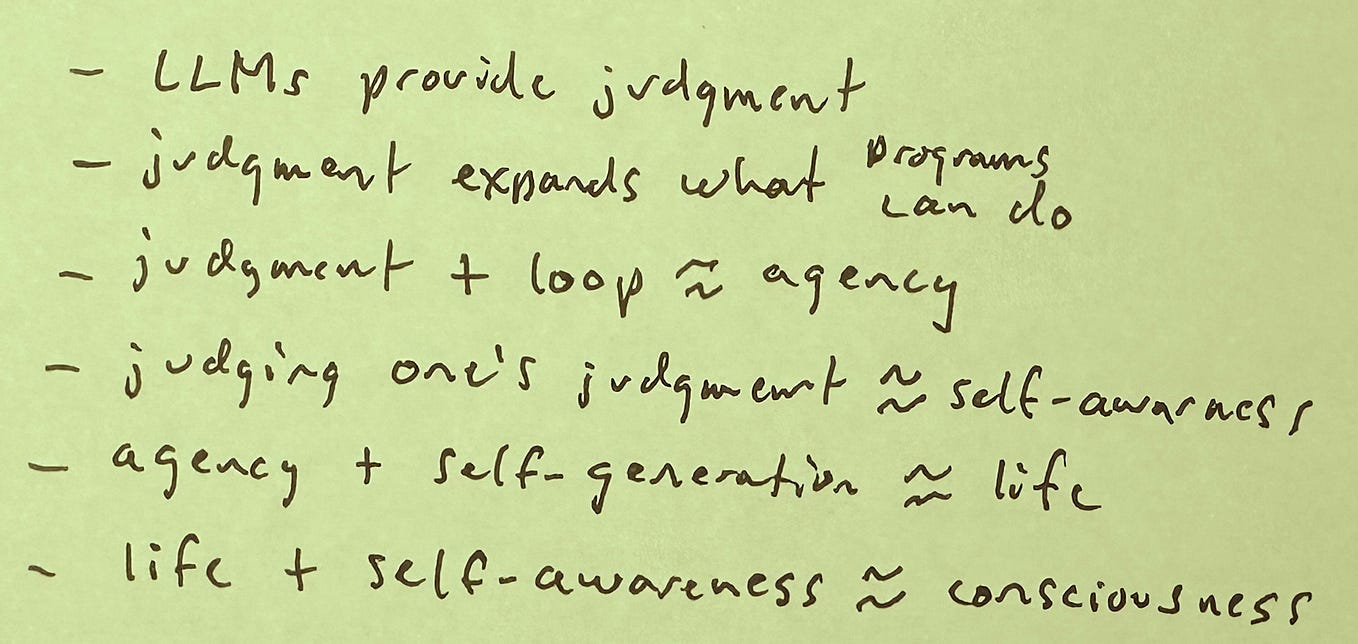 - LLMs provide judgment
- judgment expands what programs
can do
- judgment + loop ≈ agency
- judging one's judgment ≈ self-awarness
- agency + self-generation ≈ life
- life + self-awareness ≈ consciousness